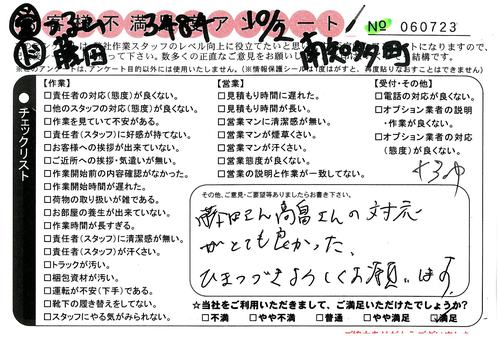 3484 10/2
No 060723
お客様不満足アンケート
ド 藤田 南知多町
社作業スタッフのレベル向上に役立てたいと思い
数多くの正直なご意見をお願い
このアンケートは、アンケート目的以外には使用いたしません。（※情報保護シールは1度はがすと、再度貼りなおすことはできません）
チェックリスト
【作業】
□責任者の対応(態度)が良くない。
□他のスタッフの対応(態度)が良くない。
□作業を見ていて不安がある。
□責任者(スタッフ)に好感が持てない。
□お客様への挨拶が出来ていない。
□ご近所への挨拶・気遣いが無い。
□作業開始前の内容確認がなかった。
□作業開始時間が遅れた。
□荷物の取り扱いが雑である。
□お部屋の養生が出来ていない。
□作業時間が長すぎる。
□責任者(スタッフ)に清潔感が無い。
□責任者(スタッフ)が汗くさい。
□トラックが汚い。
□梱包資材が汚い。
□運転が不安(下手)である。
□靴下の履き替えをしてない。
□スタッフにやる気がみられない。
【営業】
□見積もり時間に遅れた。
□見積もり時間が長い。
□営業マンに清潔感が無い。
□営業マンが煙草くさい。
□営業マンが汗くさい。
□営業態度が良くない。
□営業の説明と作業が一致してない。
【受付・その他】
□電話の対応が良くない。
□オプション業者の説明・作業が良くない。
□オプション業者の対応(態度)が良くない。
その他、ご意見・ご要望等ありましたらお書き下さい。
藤田さん高畠さんの対応
がとても良かった。
ひきつづきよろしくお願いします。
☆当社をご利用いただきまして、ご満足いただけたでしょうか?
□不満 □やや不満 □普通 □やや満足 □満足